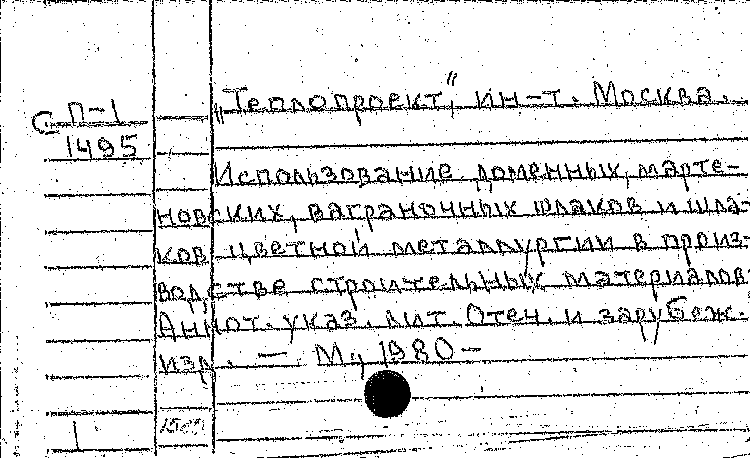 С П-1
1495
„Теплопроект", ин-т. Москва.
Использование доменных, марте-
новских, ваграночных шлаков и шла-
ков цветной металлургии в произ-
водстве строительных материалов.
Аннот. указ. лит. Отеч. и зарубеж.
изд. — М., 1980-
1